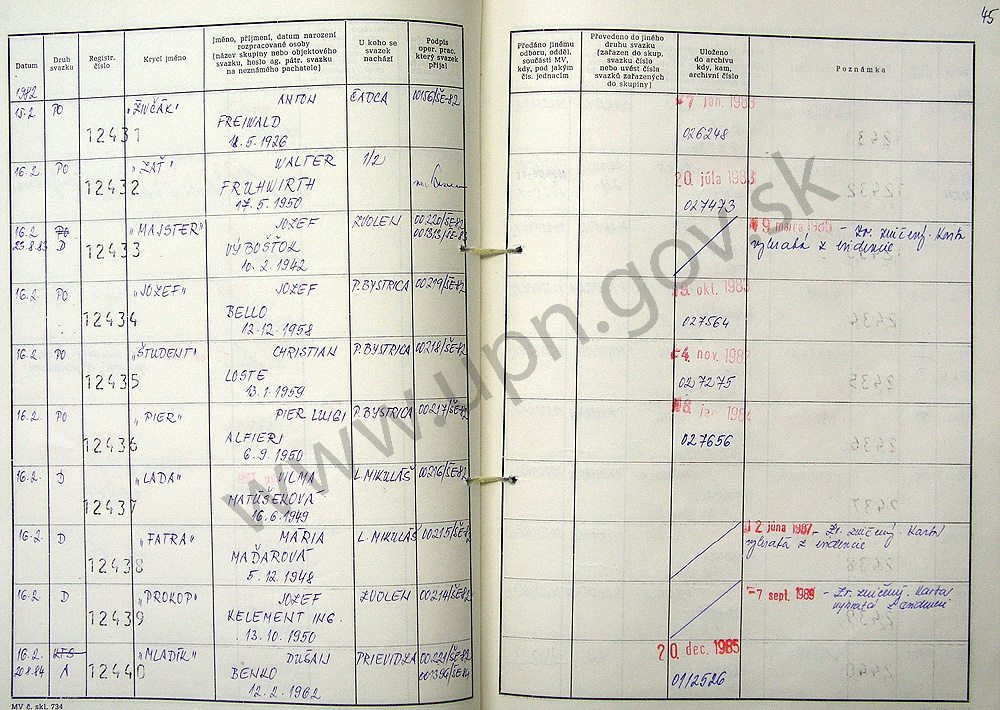 45
Datum
Druh svazku
Registr. číslo
Krycí jméno
Jméno, příjmení, datum narození
rozpracované osoby
(název skupiny nebo objektového
svazku, heslo ag. pátr. svazku
na neznámého pachatele)
U koho se
svazek
nachází
Podpis
oper. prac.
který svazek
přijal
Předáno jinému
odboru, odděl.
součásti MV,
kdy, pod jakým
čís. jednacím
Převedeno do jiného
druhu svazku
(zařazen do skup.
svazku číslo
nebo uvést čísla
svazků zařazených
do skupiny)
Uloženo
do archivu
kdy, kam,
archivní číslo
Poznámka
1982
15.2. PO 12431 "ŽIVČÁK" ANTON ČADCA 00156/ŠE-82
FREIWALD
11.5.1926
7 jan. 1983
026248
16.2. PO 12432 "ZAŤ" WALTER 1/2
FRUHWIRTH
17.5.1950
20. júla 1983
027473
16.2. PO 12433 "MAJSTER" JOZEF ZVOLEN 00220/ŠE-82
25.8.83 D VÝBOŠŤOK 001313/ŠE-83
10.2.1942
9 marca - Zv. zničený. Karta
vybratá z evidencie
16.2. PO 12434 "JOZEF" JOZEF P. BYSTRICA 00219/ŠE-82
BELLO
12.12.1958
okt. 1983
027564
16.2. PO 12435 "ŠTUDENT" CHRISTIAN P. BYSTRICA 00218/ŠE-82
LOSTE
13.1.1959
-4. nov. 198
027275
16.2. PO 12436 "PIER" PIER LUIGI P. BYSTRICA 00217/ŠE-82
ALFIERI
6.9.1950
jan. 1984
027656
16.2. D 12437 "LADA" VILMA L. MIKULÁŠ 00216/ŠE-82
MATÚŠEKOVÁ
16.6.1949
16.2. D 12438 "FATRA" MÁRIA L. MIKULÁŠ 00215/ŠE-82
MAĎAROVÁ
5.12.1948
2 júna 1987 - Zv. zničený. Karta
vybratá z evidencie
16.2. D 12439 "PROKOP" JOZEF ZVOLEN 00214/ŠE-82
KELEMENT ING.
13.10.1950
-7 sept. 1989 - Zv. zničený. Karta
vybratá z evidencie
16.2. KTS 12440 "MLADÍK" DUŠAN PRIEVIDZA 00221/ŠE-82
20.8.84 A BENKO 001396/ŠE-84
12.2.1962
20. dec. 1985
01/2526
MV č. skl. 734
www.upn.gov.sk